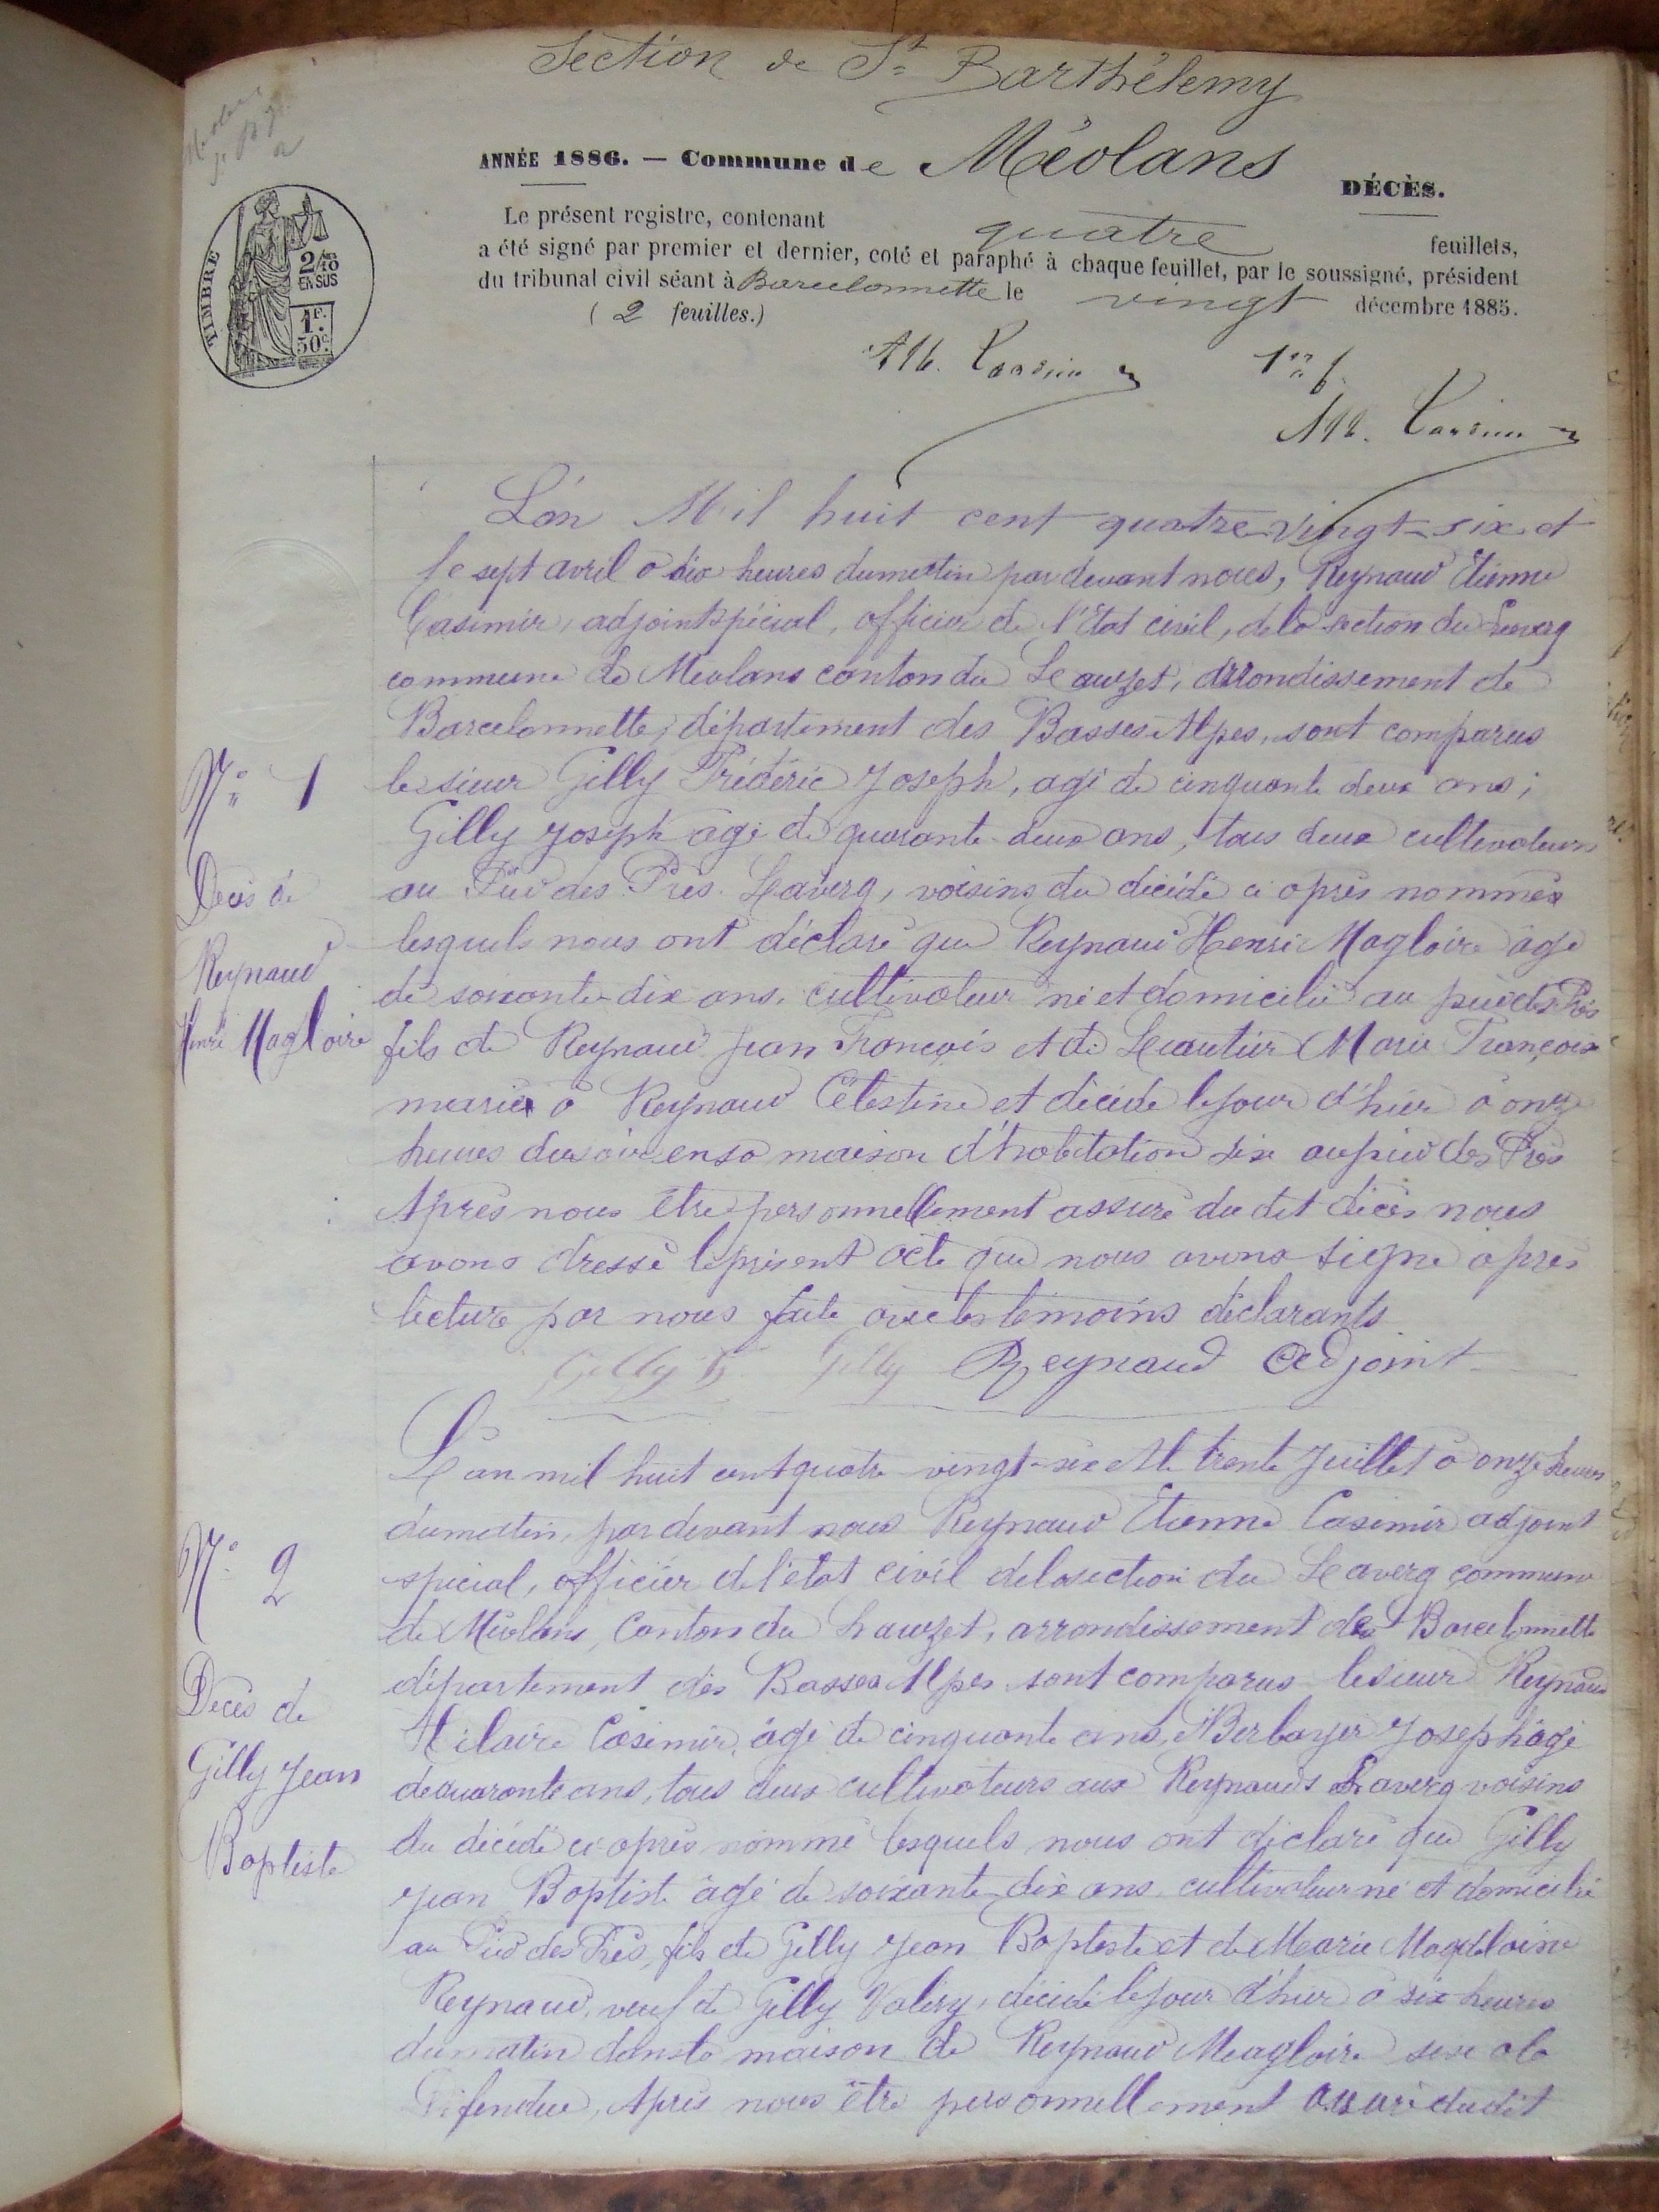 Section de St Barthélemy
ANNÉE 1886. — Commune de Méolans
DÉCÈS.
Le présent registre, contenant quatre feuillets,
a été signé par premier et dernier, coté et paraphé à chaque feuillet, par le soussigné, président
du tribunal civil séant à Barcelonnette le vingt décembre 1885.
( 2 feuilles.)
TIMBRE
2/10
EN SUS
1F.
50c.
L'an Mil huit cent quatre-vingt-six et
le sept avril à dix heures du matin par devant nous, Reynaud Etienne
Casimir, adjoint spécial, officier de l'Etat civil, de la section du Laverq
commune de Méolans canton du Lauzet, arrondissement de
Barcelonnette, département des Basses Alpes, sont comparus
le sieur Gilly Frédéric Joseph, agé de cinquante deux ans;
Gilly Joseph agé de quarante-deux ans, tous deux cultivateurs
au Pied des Prés Laverq, voisins du décédé ci après nommés
lesquels nous ont déclaré que Reynaud Henri Magloire âgé
de soixante-dix ans, cultivateur né et domicilié au pied des Prés
fils de Reynaud Jean François et de Marie François
marié à Reynaud Célestine et décédé le jour d'hier à onze
heures du soir en sa maison d'habitation sise au pied des Prés
Après nous être personnellement assuré du dit décès nous
avons dressé le présent acte que nous avons signé après
lecture par nous faite avec les témoins déclarants
Gilly Gilly Reynaud adjoint
N° 1
Décès de
Reynaud
Henri Magloire
L'an mil huit cent quatre vingt-six et le trente Juillet à onze heures
du matin, par devant nous Reynaud Etienne Casimir adjoint
spécial, officier de l'état civil de la section du Laverq commune
de Méolans, Canton du Lauzet, arrondissement de Barcelonnette
département des Basses Alpes sont comparus le sieur Reynaud
Hilaire Casimir, âgé de cinquante ans, Joseph âgé
de quarante ans, tous deux cultivateurs aux Reynauds Laverq voisins
du décédé ci après nommé lesquels nous ont déclaré que Gilly
Jean Baptiste âgé de soixante-dix ans cultivateur né et domicilié
au Pied des Prés, fils de Gilly Jean Baptiste et de Marie Magdeleine
Reynaud, veuf de Gilly Valéry, décédé le jour d'hier à six heures
du matin dans la maison de Reynaud Magloire sise à la
Défendue, Après nous être personnellement assuré du dit
N° 2
Décès de
Gilly Jean
Baptiste